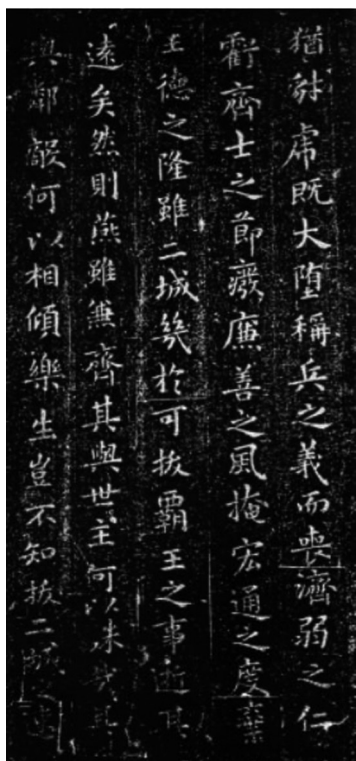 猶豺虎既大墮稱兵之義而喪濟弱之仁
虧齊士之節廢廉善之風掩宏通之度棄
王德之隆雖二城幾扵可拔霸王之事逝其
遠矣然則燕雖兼齊其與世主何以殊哉其
與鄰敵何以相傾樂生豈不知拔二城之速